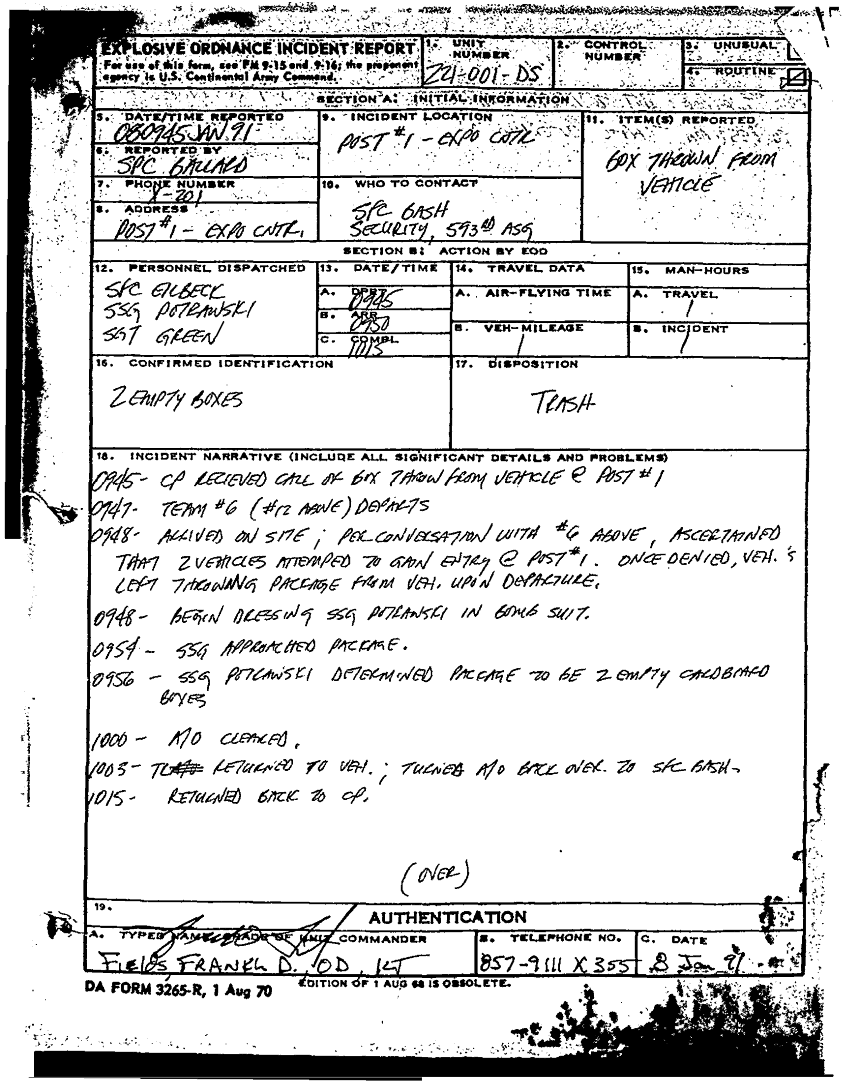 EXPLOSIVE ORDNANCE INCIDENT REPORT
For use of this form, see FM 9-15 and 9-16; the proponent
agency is U.S. Continental Army Command.
1. UNIT NUMBER
221-001-DS
2. CONTROL NUMBER
3. UNUSUAL
4. ROUTINE
SECTION A: INITIAL INFORMATION
5. DATE/TIME REPORTED
080945 JAN 91
6. REPORTED BY
SPC BALLARD
7. PHONE NUMBER
X-201
8. ADDRESS
POST #1 - EXPO CNTR.
9. INCIDENT LOCATION
POST #1 - EXPO CNTR
10. WHO TO CONTACT
SFC BASH
SECURITY, 593RD ASG
11. ITEM(S) REPORTED
BOX THROWN FROM
VEHICLE
SECTION B: ACTION BY EOD
12. PERSONNEL DISPATCHED
SFC EILBECK
SSG POTRAWSKI
SGT GREEN
13. DATE/TIME
A. DPRT
0945
B. ARR
0950
C. COMPL
1015
14. TRAVEL DATA
A. AIR-FLYING TIME
B. VEH-MILEAGE
/
15. MAN-HOURS
A. TRAVEL
/
B. INCIDENT
/
16. CONFIRMED IDENTIFICATION
2 EMPTY BOXES
17. DISPOSITION
TRASH
18. INCIDENT NARRATIVE (INCLUDE ALL SIGNIFICANT DETAILS AND PROBLEMS)
0945- CP RECIEVED CALL OF BOX THROW FROM VEHICLE @ POST #1
0947- TEAM #6 (#12 ABOVE) DEPARTS
0948- ARRIVED ON SITE; PER CONVERSATION WITH #6 ABOVE, ASCERTAINED
THAT 2 VEHICLES ATTEMPED TO GAIN ENTRY @ POST #1. ONCE DENIED, VEH.'S
LEFT THROWING PACKAGE FROM VEH. UPON DEPARTURE.
0948- BEGIN DRESSING SSG POTRAWSKI IN BOMB SUIT.
0954- SSG APPROACHED PACKAGE.
0956- SSG POTRAWSKI DETERMINED PACKAGE TO BE 2 EMPTY CARDBOARD
BOXES
1000- A/O CLEARED.
1003- RETURNED TO VEH.; TURNED A/O BACK OVER TO SFC BASH.
1015- RETURNED BACK TO CP.
(OVER)
19. AUTHENTICATION
A. TYPED NAME/GRADE OF UNIT COMMANDER
FIELDS, FRANK D., OD, 1LT
B. TELEPHONE NO.
857-9111 X 355
C. DATE
8 Jan 91
DA FORM 3265-R, 1 Aug 70
EDITION OF 1 AUG 68 IS OBSOLETE.